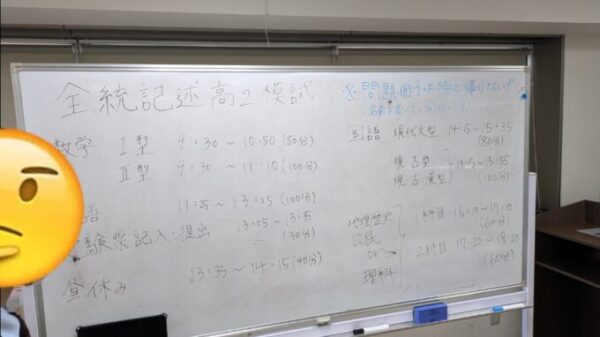 全統記述高2模試
数学 Ⅰ型 9:30〜10:50(80分)
Ⅱ型 9:30〜11:10(100分)
語 11:25〜13:05(100分)
験票記入・提出 13:05〜13:35(30分)
昼休み 13:35〜14:15(40分)
※問題冊子は持ち帰らない!
国語 現代文型 14:15〜15:35(80分)
現古型
現古漢型
14:15〜15:55(100分)
地理歴史
公民
or
理科
1科目 16:10〜17:10(60分)
2科目 17:20〜18:20(60分)